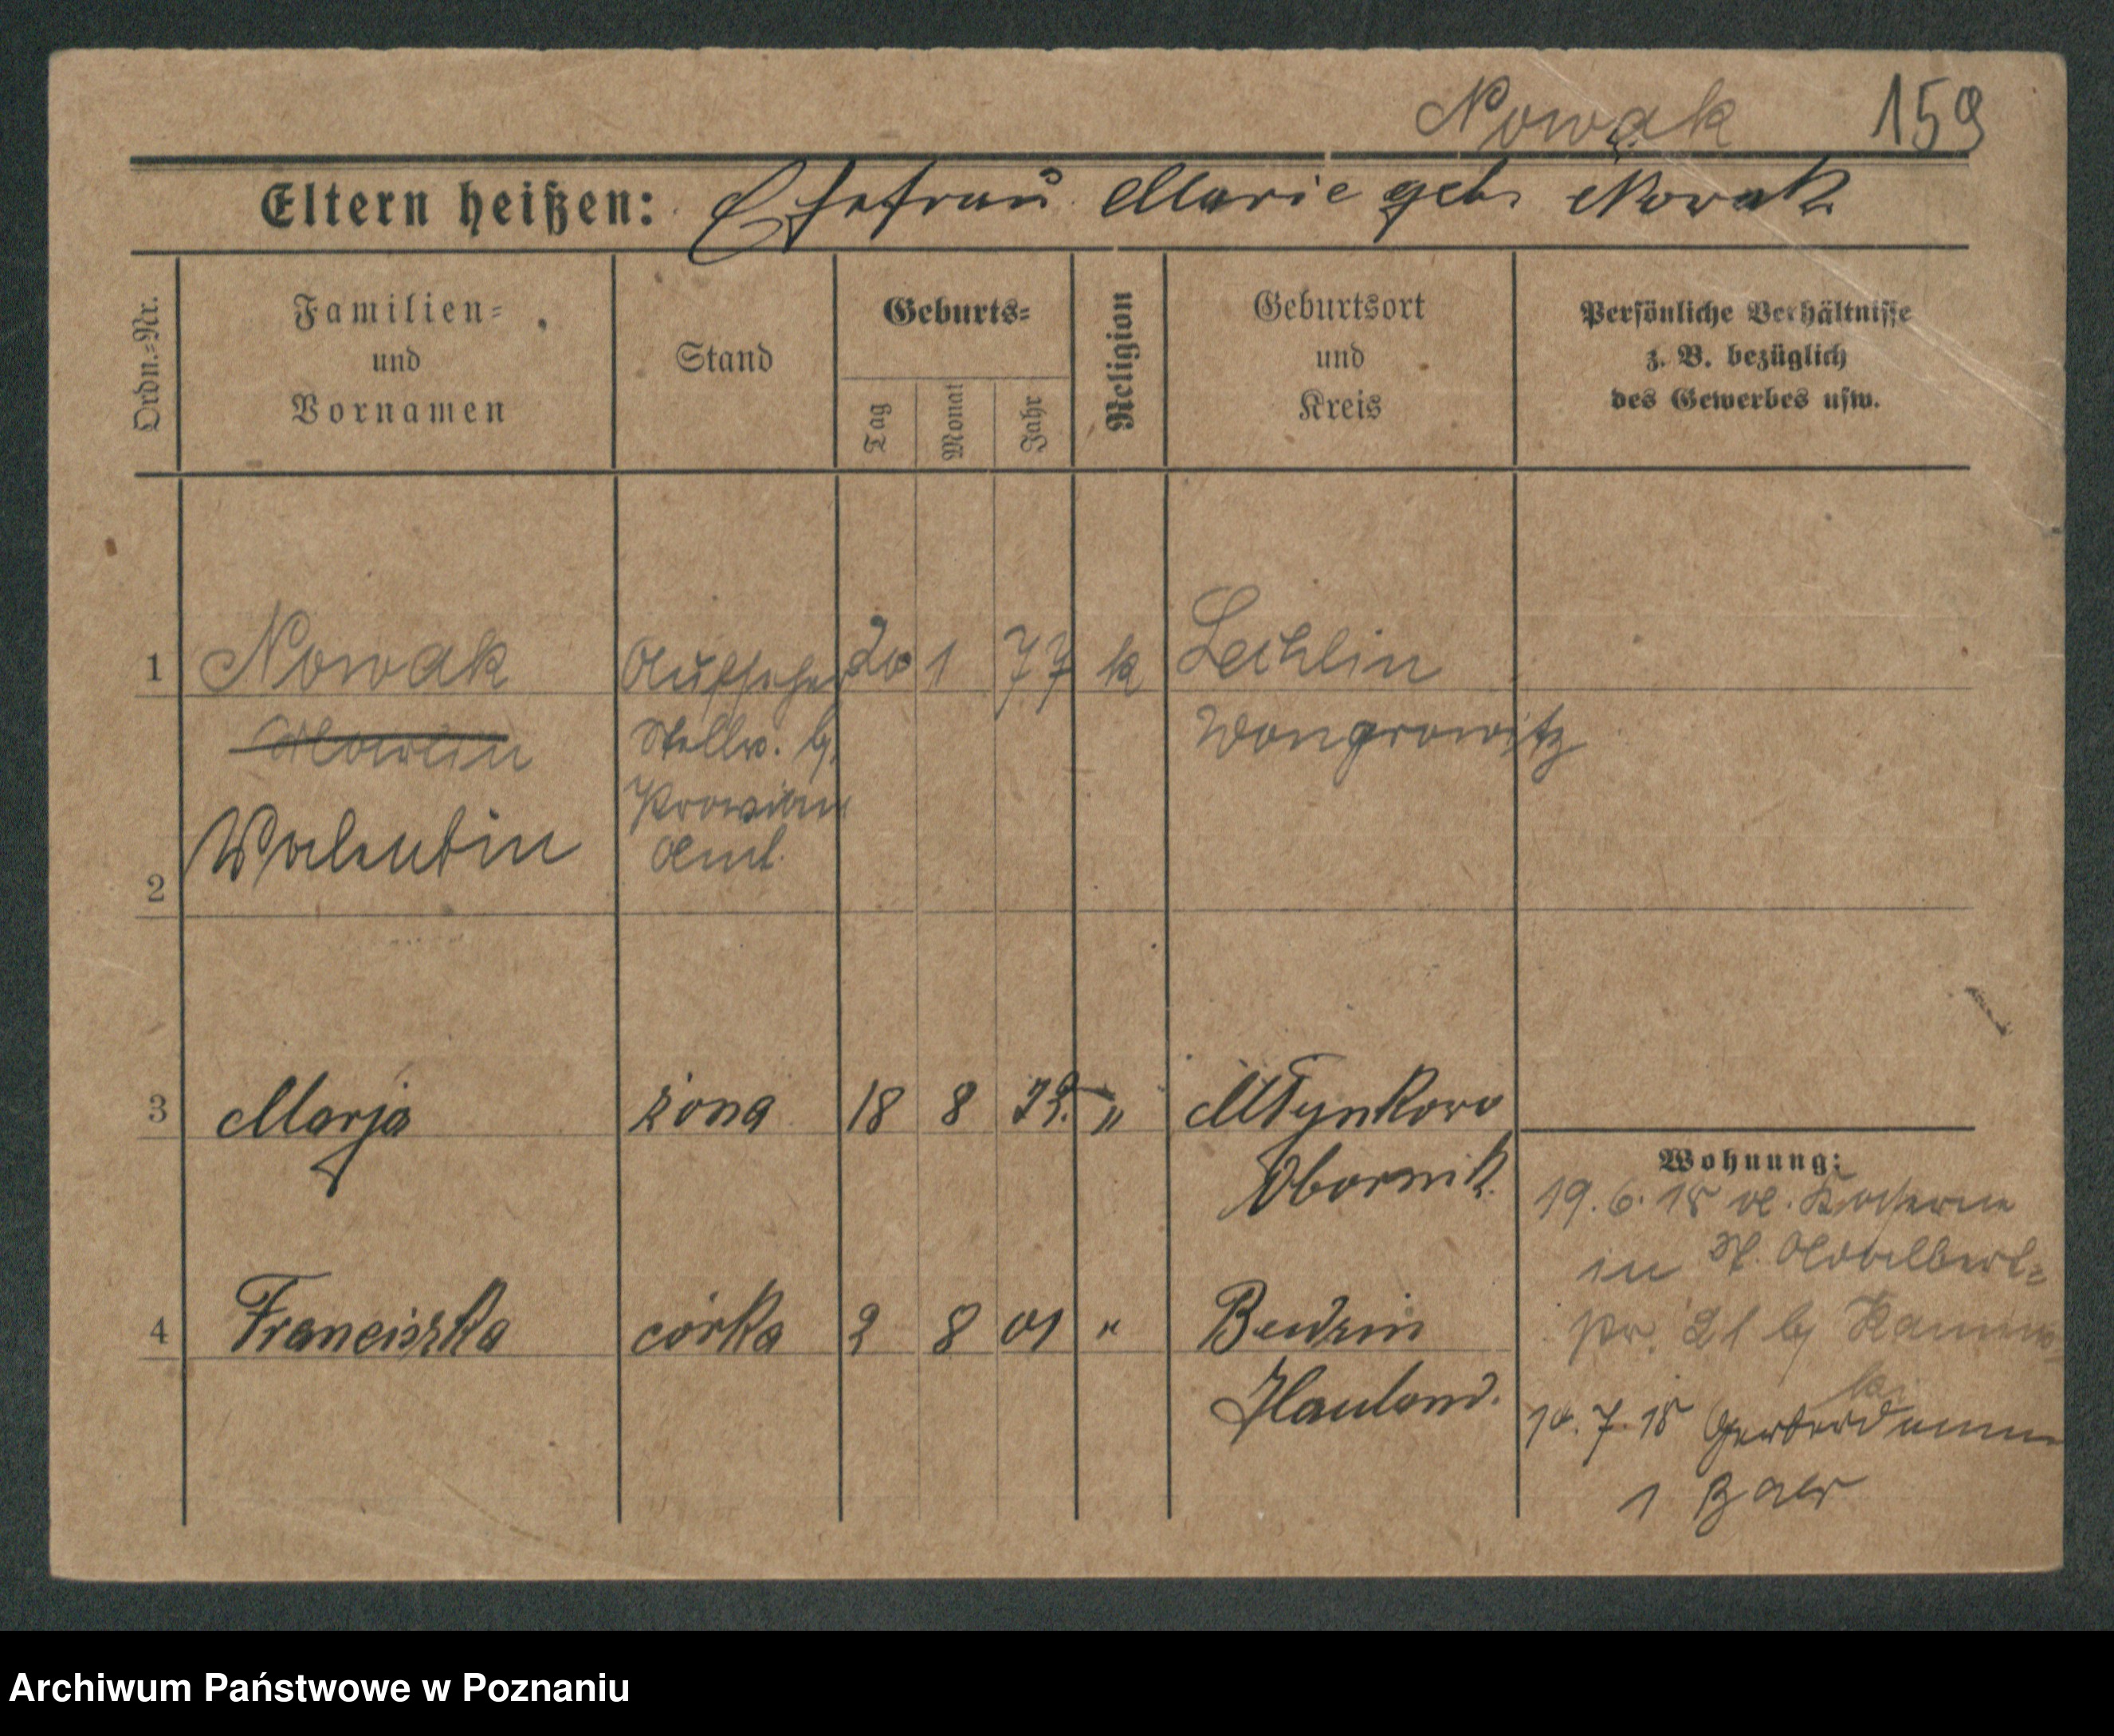 Nowak 159
Eltern heißen: Ehefrau Marie geb. Nowak
Ordn.=Nr.
Familien=
und
Vornamen
Stand
Geburts=
Tag
Monat
Jahr
Religion
Geburtsort
und
Kreis
Persönliche Verhältnisse
z. B. bezüglich
des Gewerbes usw.
1 Nowak Aufseher 20 1 77 k Lechlin
Stellv. b. Wongrowitz
Valentin Provian
Amt.
2
3 Marja żona 18 8 „ Młynkowo
Obornik.
4 Franciszka córka 2 8 01 " Bendzin
Hauland.
Wohnung:
19. 6. 18 Kaserne
in St. Adalbert=
21 b/
10. 7. 18 Gerberdamm
1
Archiwum Państwowe w Poznaniu